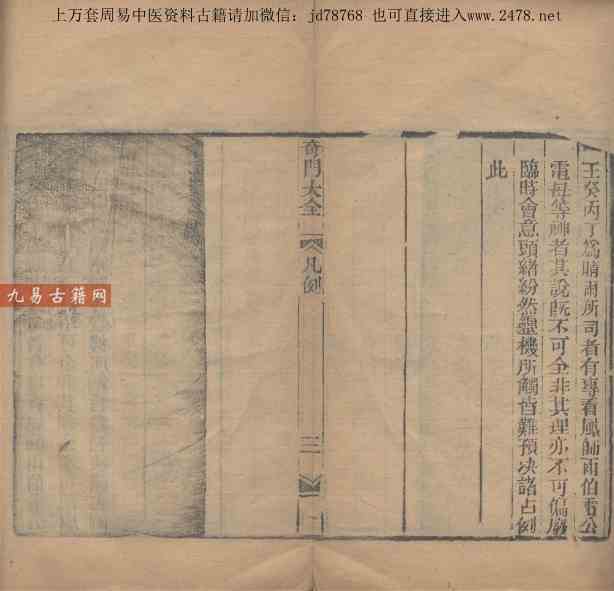 上万套周易中医资料古籍请加微信：jd78768 也可直接进入www.2478.net
壬癸丙丁爲晴雨所司者有專看風師雨伯雷公
電母等神者其說既不可全非其理亦不可偏廢
臨時會意頭緒紛然靈機所觸皆難預决諸占例
此
奇門大全
凡例
三
九易古籍网